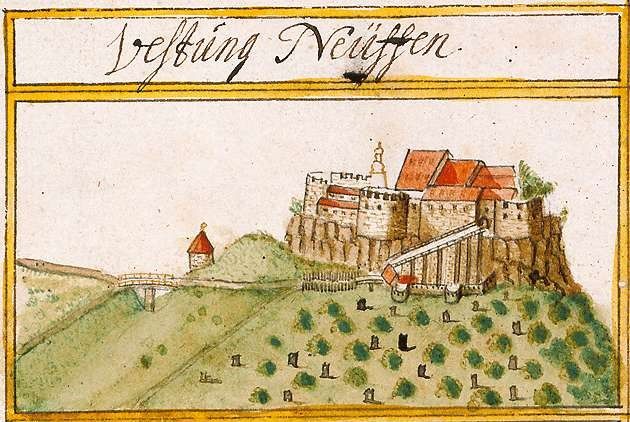 Vestung Neüffen.